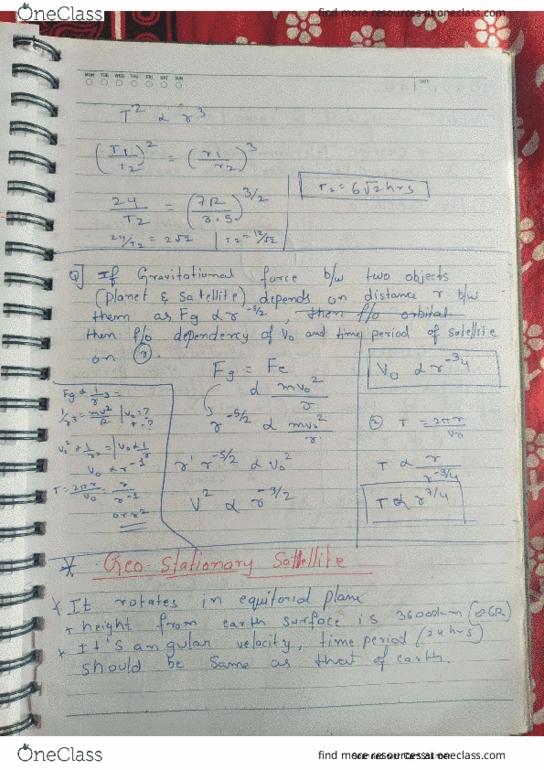 OneClass
find more resources at oneclass.com
MON TUE WED THU FRI SAT SUN
DATE
T² α r³
(T1/T2)² = (r1/r2)³
24/T2 = (7R/3.5)^3/2
T2 = 6√2 hrs
24/T2 = 2√2 | T2 = 12/√2
Q] If Gravitational force b/w two objects
(planet & satellite) depends on distance r b/w
them as Fg α r^-5/2, then f/o orbital
them f/o dependency of Vo and time period of satellite
on (r).
Fg = Fc
α mvo²/r
r^-5/2 α mvo²/r
r' r^-5/2 α vo²
V² α r^-3/2
Vo α r^-3/4
② T = 2πr/Vo
T α r/r^-3/4
T α r^7/4
Vo α r^-1
T = 2πr/Vo = r/r^-1
α r²
* Geo-Stationary Satellite
* It rotates in equitorial plane
* height from earth surface is 36000km (≈6R)
* It's angular velocity, time period (24 hrs)
should be same as that of earth.
OneClass
find more resources at oneclass.com